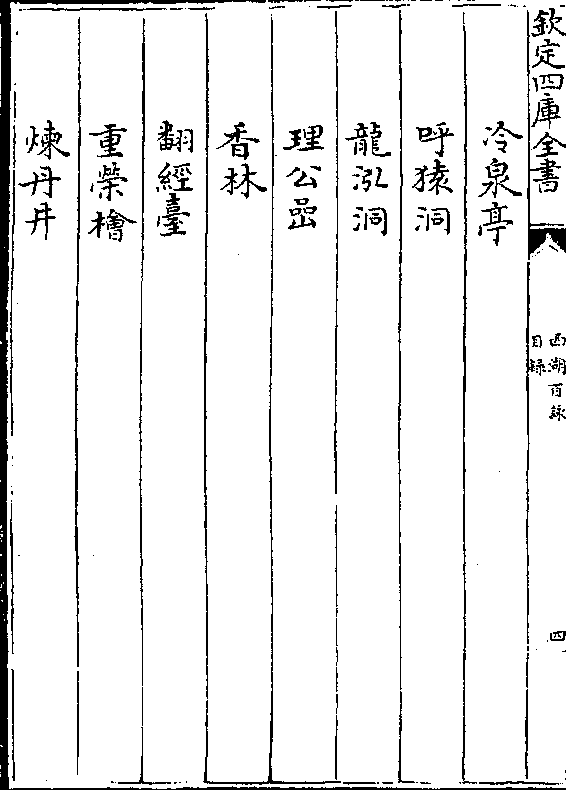 欽定四庫全書
西湖百詠
目録
四
冷泉亭
呼猿洞
龍泓洞
理公嵒
香林
翻經臺
重榮檜
煉丹井